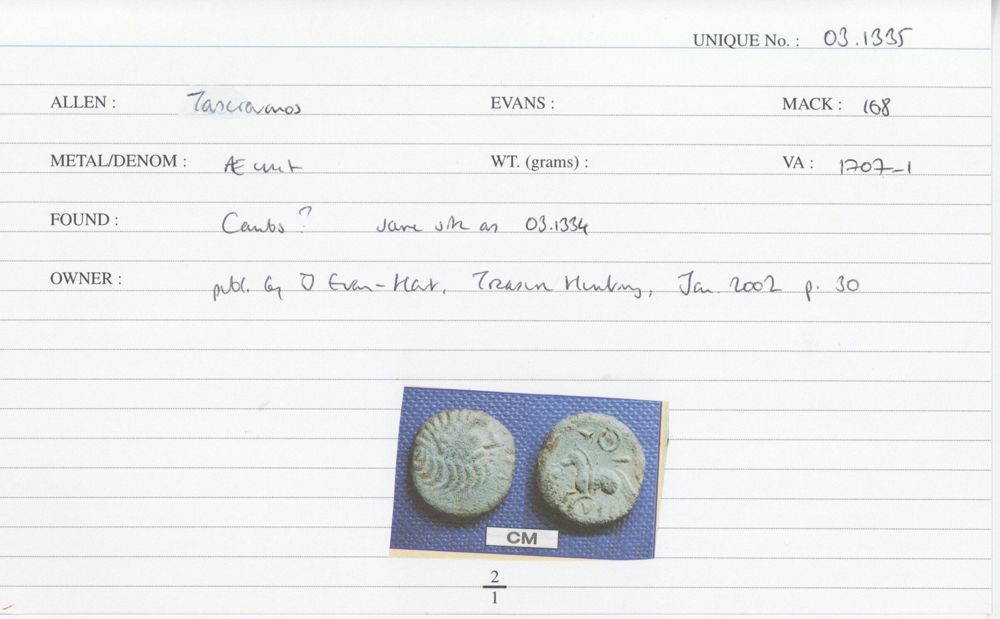 UNIQUE No. : 03.1335
ALLEN : Tasciovanos EVANS : MACK : 168
METAL/DENOM : Æ unit WT. (grams) : VA : 1707-1
FOUND : Cambs? same site as 03.1334
OWNER : publ. by D Evan-Hart, Treasure Hunting, Jan. 2002 p. 30
CM
2
1